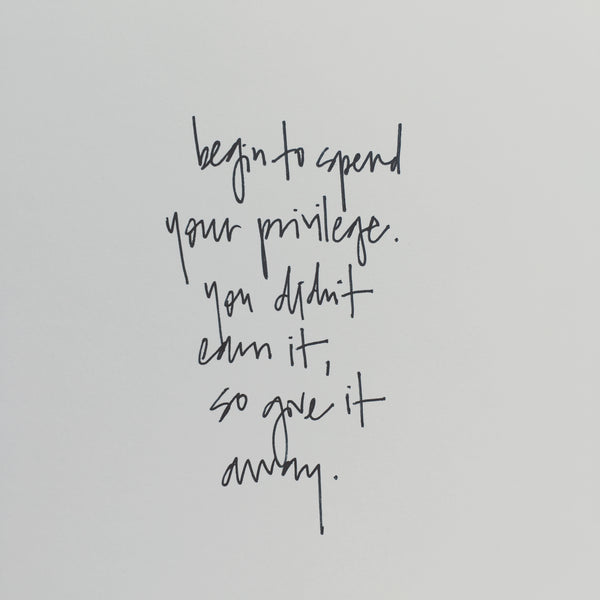 begin to spend
your privilege.
you didn't
earn it,
so give it
away.